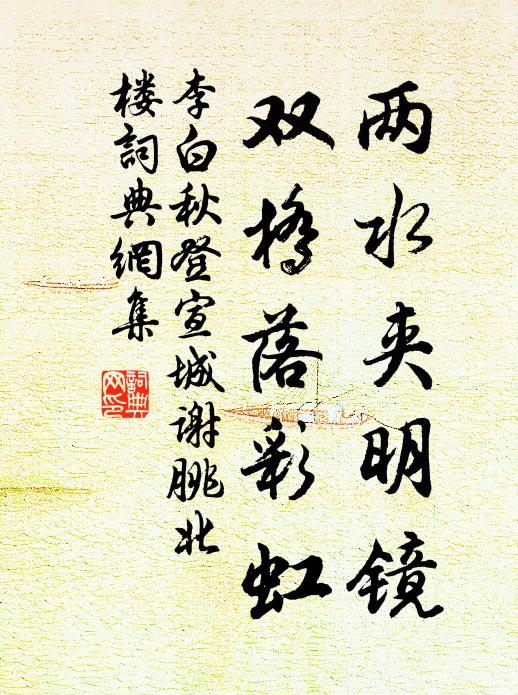 两水夹明镜
双桥落彩虹
李白秋登宣城谢朓北
楼词典网集
詞典
网印